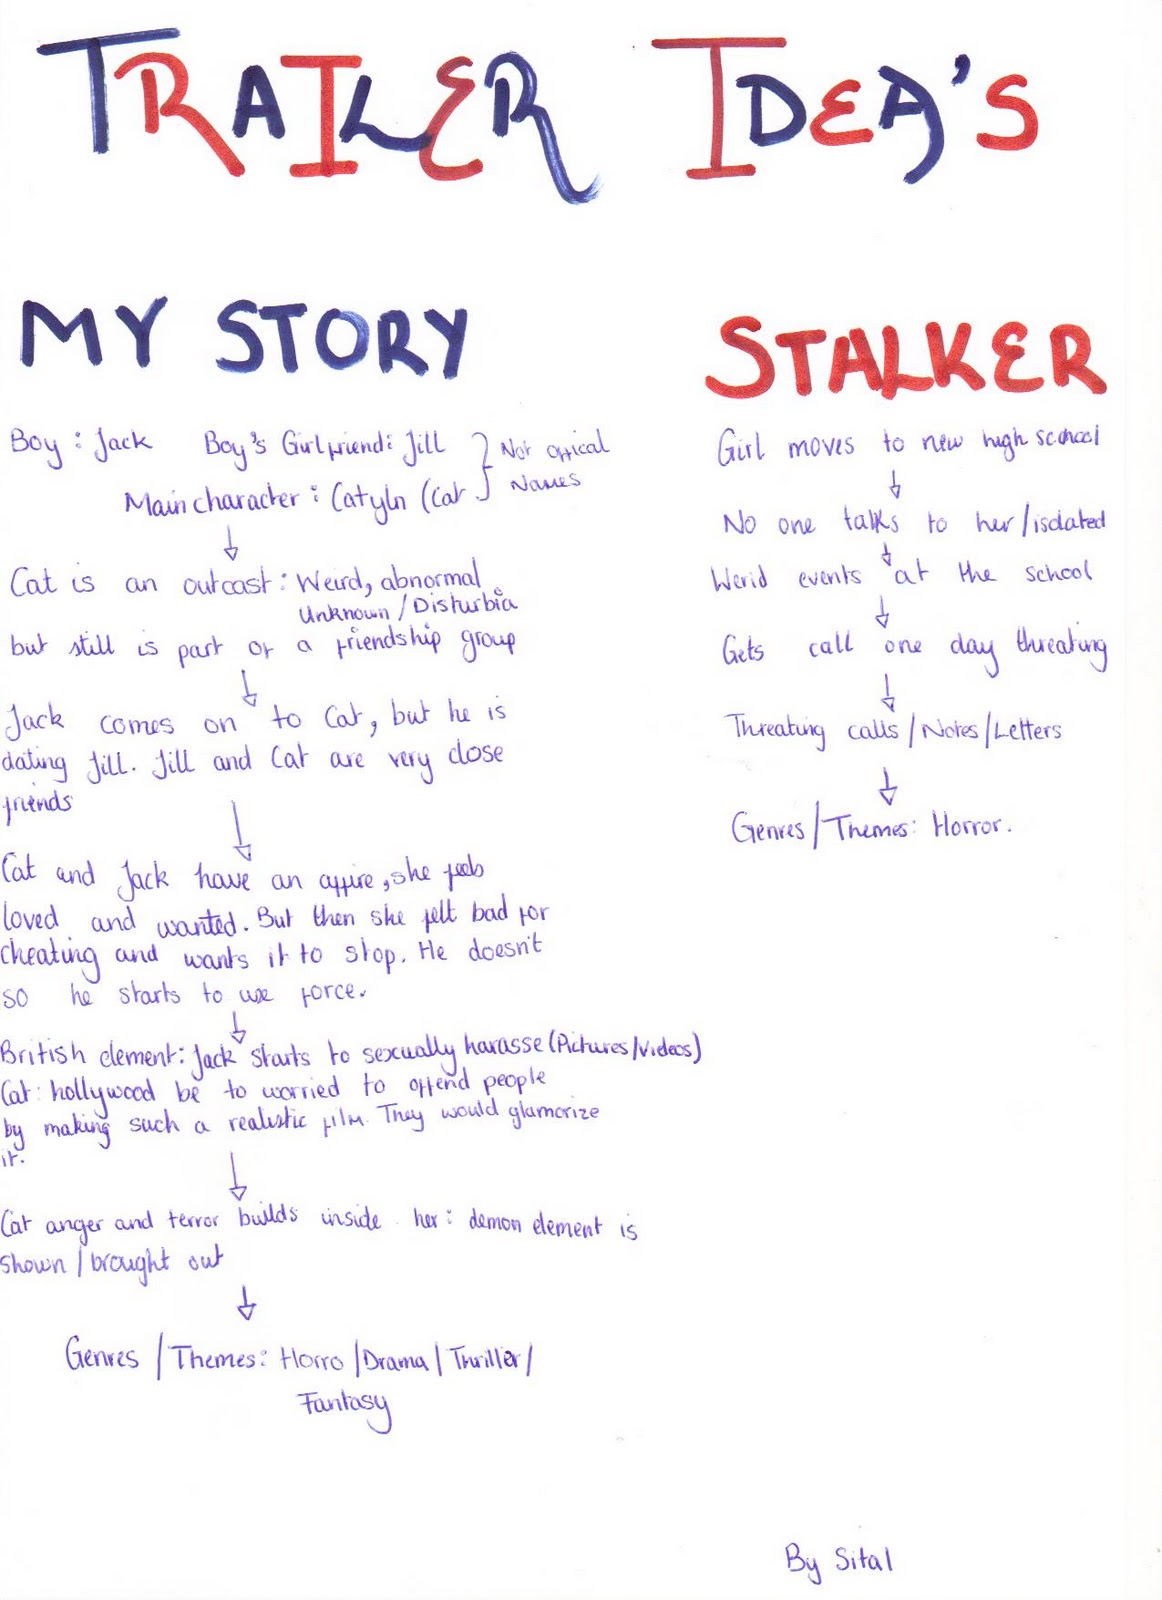 TRAILER IDEA'S
MY STORY
Boy : Jack Boy's Girlfriend: Jill } Not offical
Names
Main character : Catyln (Cat
Cat is an outcast : Weird, abnormal
Unknown / Disturbia
but still is part of a friendship group
Jack comes on to Cat, but he is
dating Jill. Jill and Cat are very close
friends
Cat and Jack have an affire, she feels
loved and wanted. But then she felt bad for
cheating and wants it to stop. He doesn't
so he starts to use force.
British element: Jack starts to sexually harasse (Pictures/Videos)
Cat : hollywood be to worried to offend people
by making such a realistic film. They would glamorize
it.
Cat anger and terror builds inside her : demon element is
shown / brought out
Genres / Themes : Horro / Drama / Thriller /
Fantasy
STALKER
Girl moves to new high school
No one talks to her / isolated
Werid events at the school
Gets call one day threating
Threating calls / Notes / Letters
Genres / Themes: Horror.
By Sital